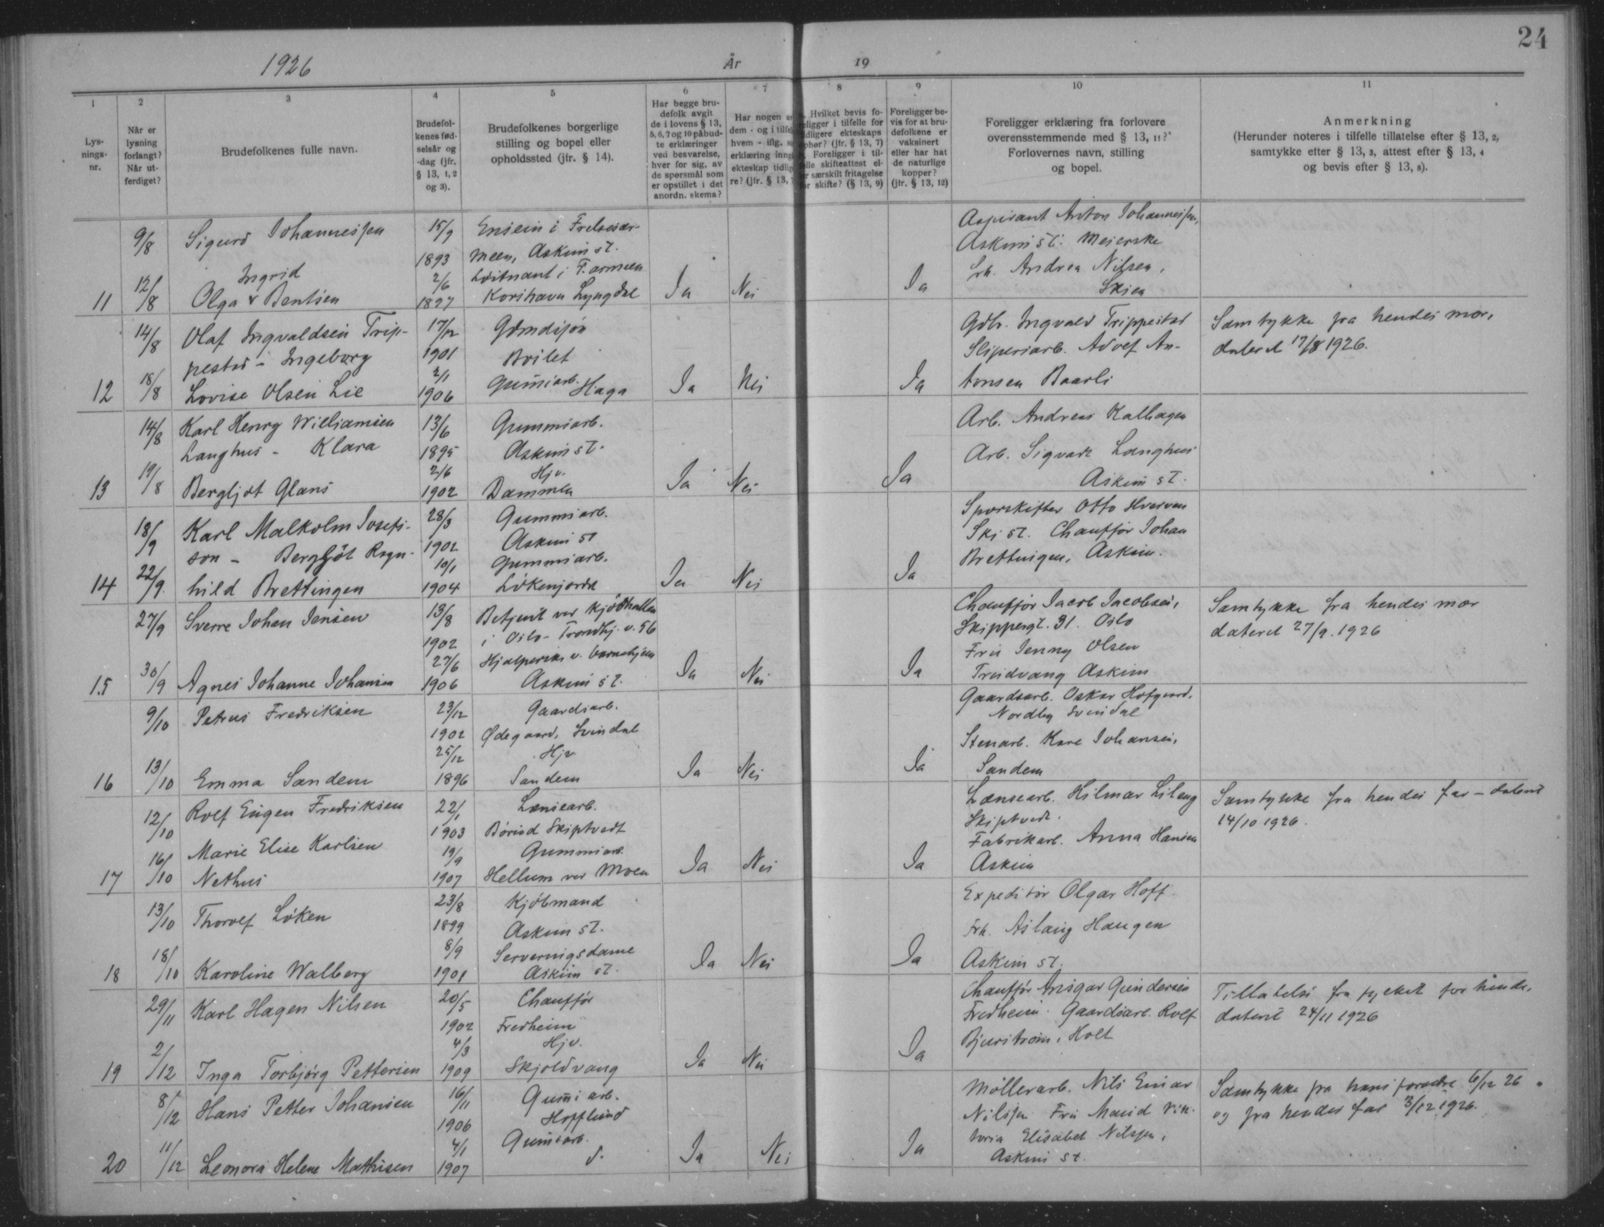 24
1926 År 19
1 2 3 4 5 6 7 8 9 10 11
Lys-
nings-
nr.
Når er
lysning
forlangt?
Når ut-
ferdiget?
Brudefolkenes fulle navn.
Brudefol-
kenes fød-
selsår og
-dag (jfr.
§ 13, 1, 2
og 3).
Brudefolkenes borgerlige
stilling og bopel eller
opholdssted (jfr. § 14).
Har begge bru-
defolk avgit
de i lovens § 13,
5, 6, 7 og 10 påbud-
te erklæringer
ved besvarelse,
hver for sig, av
de spersmål som
er opstillet i det
anordn. skema?
Har nogen
dem - og i tilfe
hvem - iflg.
erklæring inng
ekteskap tidlig
re? (jfr. § 13,
Hvilket bevis fo-
religger i tilfelle for
tidligere ekteskaps
ophør? (jfr. § 13, 7)
Foreligger i til-
felle skifteattest el-
ler særskilt fritagelse
for skifte? (§ 13, 9)
Foreligger be-
vis for at bru-
defolkene er
vaksinert
eller har hat
de naturlige
kopper?
(jfr. § 13, 12)
Foreligger erklæring fra forlovere
overensstemmende med § 13, 11?
Forlovernes navn, stilling
og bopel.
Anmerkning
(Herunder noteres i tilfelle tillatelse efter § 13, 2,
samtykke efter § 13, 3, attest efter § 13, 4
og bevis efter § 13, 8).
9/8 Sigurd Johannessen 15/9 Ensein i Frelsesar- Aspirant Anton Johannessen,
1893 meen, Askim st. Askim st. Meierske
Ingrid 2/6 Løitnant i F. armeen Frk. Andrea Nilsen,
11 12/8 Olga v Bentsen 1897 Korshavn Lyngdal Ja Nei Ja Skien
14/8 Olaf Ingvaldsen Trip- 17/12 Gdmdssøn Gdbr. Ingvald Trippestad Samtykke fra hendes mor,
pestad - Ingeborg 1901 Sliperiarb. Adolf An- dateret 17/8 1926.
2/1 Gumiarb.
12 18/8 Lovise Olsen Lie 1906 Haga Ja Nei Ja tonsen Baarli
14/8 Karl Henry Williamsen 13/6 Gummiarb. Arb. Andreas Kalhagen
Langhus - Klara 1895 Askim st. Arb. Sigvart Langhus
2/6 Hjv.
13 19/8 Bergljot Glans 1902 Dammen Ja Nei Ja Askim st.
18/9 Karl Malkolm Josefs- 28/3 Gummiarb. Sporskifter Otto
son - Bergljot Ragn- 1902 Askim st Ski st. Chauffør Johan
10/1 Gummiarb. Brettingen, Askim.
14 22/9 hild Brettingen 1904 Løkenjordet Ja Nei Ja
27/9 Sverre Johan Jensen 13/8 Betjent ved Kjødhallen Chauffør Jacob Jacobsen, Samtykke fra hendes mor
1902 i Oslo - Trondhj. v. 56 Skippergt. 31. Oslo dateret 27/9. 1926
27/6 Hjælperske v. barnehjem Fru Jenny Olsen
15 30/9 Agnes Johanne Johansen 1906 Askim st. Ja Nei Ja Trudvang Askim
9/10 Petrus Fredriksen 23/12 Gaardsarb. Gaardsarb. Oskar Hofgaard.
1902 Ødegaard, Svindal Nordby Svindal
25/12 Hjv Stenarb. Kare Johansen,
16 13/10 Emma Sandem 1896 Sandem Ja Nei Ja Sandem
12/10 Rolf Eugen Fredriksen 22/1 Lænsearb. Lænsearb. Hilmar Lileng Samtykke fra hendes far - dateret
1903 Børud Skiptvedt Skiptvedt. 14/10 1926.
16/10 Marie Elise Karlsen 19/9 Gummiarb. Fabrikarb. Anna Hansen
17 Nethus 1907 Hellum ved Moen Ja Nei Ja Askim
13/10 Thorolf Løken 23/8 Kjøbmand Expeditør Olgar Hoff.
1899 Askim st. Frk. Aslaug Haugen
8/9 Serveringsdame
18 18/10 Karoline Walberg 1901 Askim st. Ja Nei Ja Askim st.
29/11 Karl Hagen Nilsen 20/5 Chauffør Chauffør Ansgar Gundersen Tillatelse fra fylket for hende,
1902 Fredheim Fredheim. Gaardsarb. Rolf dateret 24/11 1926
4/3 Hjv. Bjurstrøm, Holt
19 2/12 Inga Torbjørg Pettersen 1909 Skjoldvang Ja Nei Ja
8/12 Hans Petter Johansen 16/11 Gumiarb. Møllerarb. Nils Einar Samtykke fra hans forældre 6/12 26
1906 Hofflund Nilssen Fru Maud Vik- og fra hendes far 3/12 1926.
4/1 Gumiarb. toria Elisabet Nilssen,
20 11/12 Leonora Helene Mathisen 1907 Ja Nei Ja Askim st.